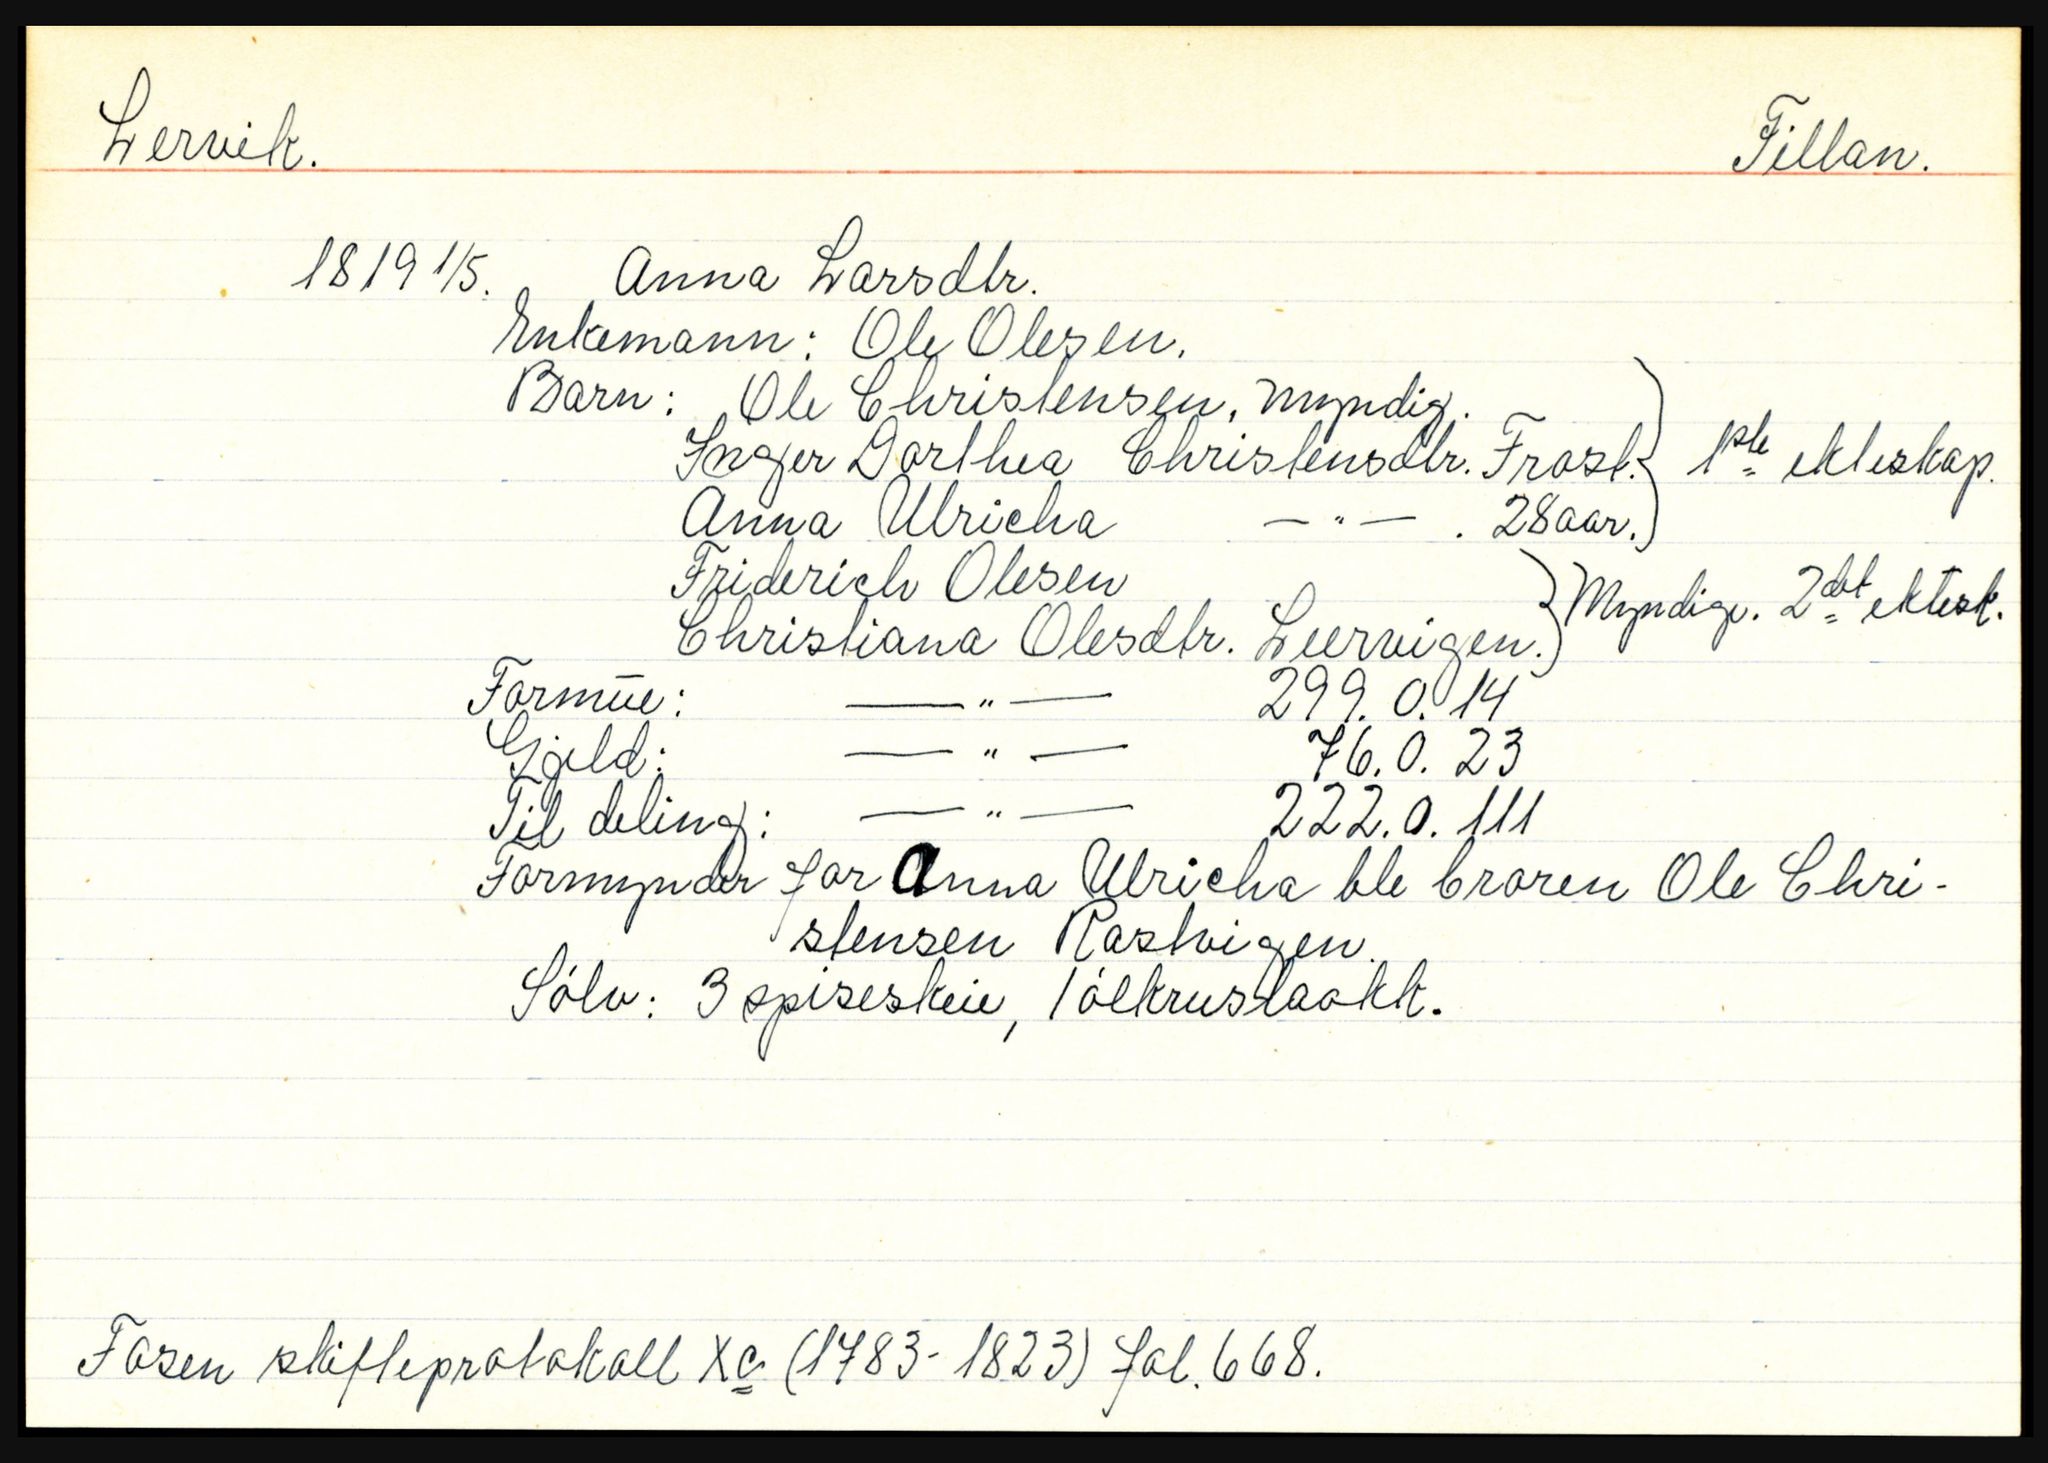 Lervik. Fillan.
1819 1/5. Anna Larsdtr.
Enkemann: Ole Olesen.
Barn: Ole Christensen, myndig.
Inger Dorthea Christensdtr. Frost. } 1ste ekteskap.
Anna Ulricha — " — . 28 aar.
Friderich Olesen
Christiana Olesdtr. Leervigen. } Myndige. 2det ektesk.
Formūe: — " — 299. 0. 14
Gjeld: — " — 76. 0. 23
Til deling: — " — 222. 0. 111
Formynder for Anna Ulricha ble broren Ole Chri-
stensen Rastvigen.
Sólv: 3 spiseskeie, 1 ólkruslaokk.
Fosen skifteprotokoll Xc (1783-1823) fol. 668.